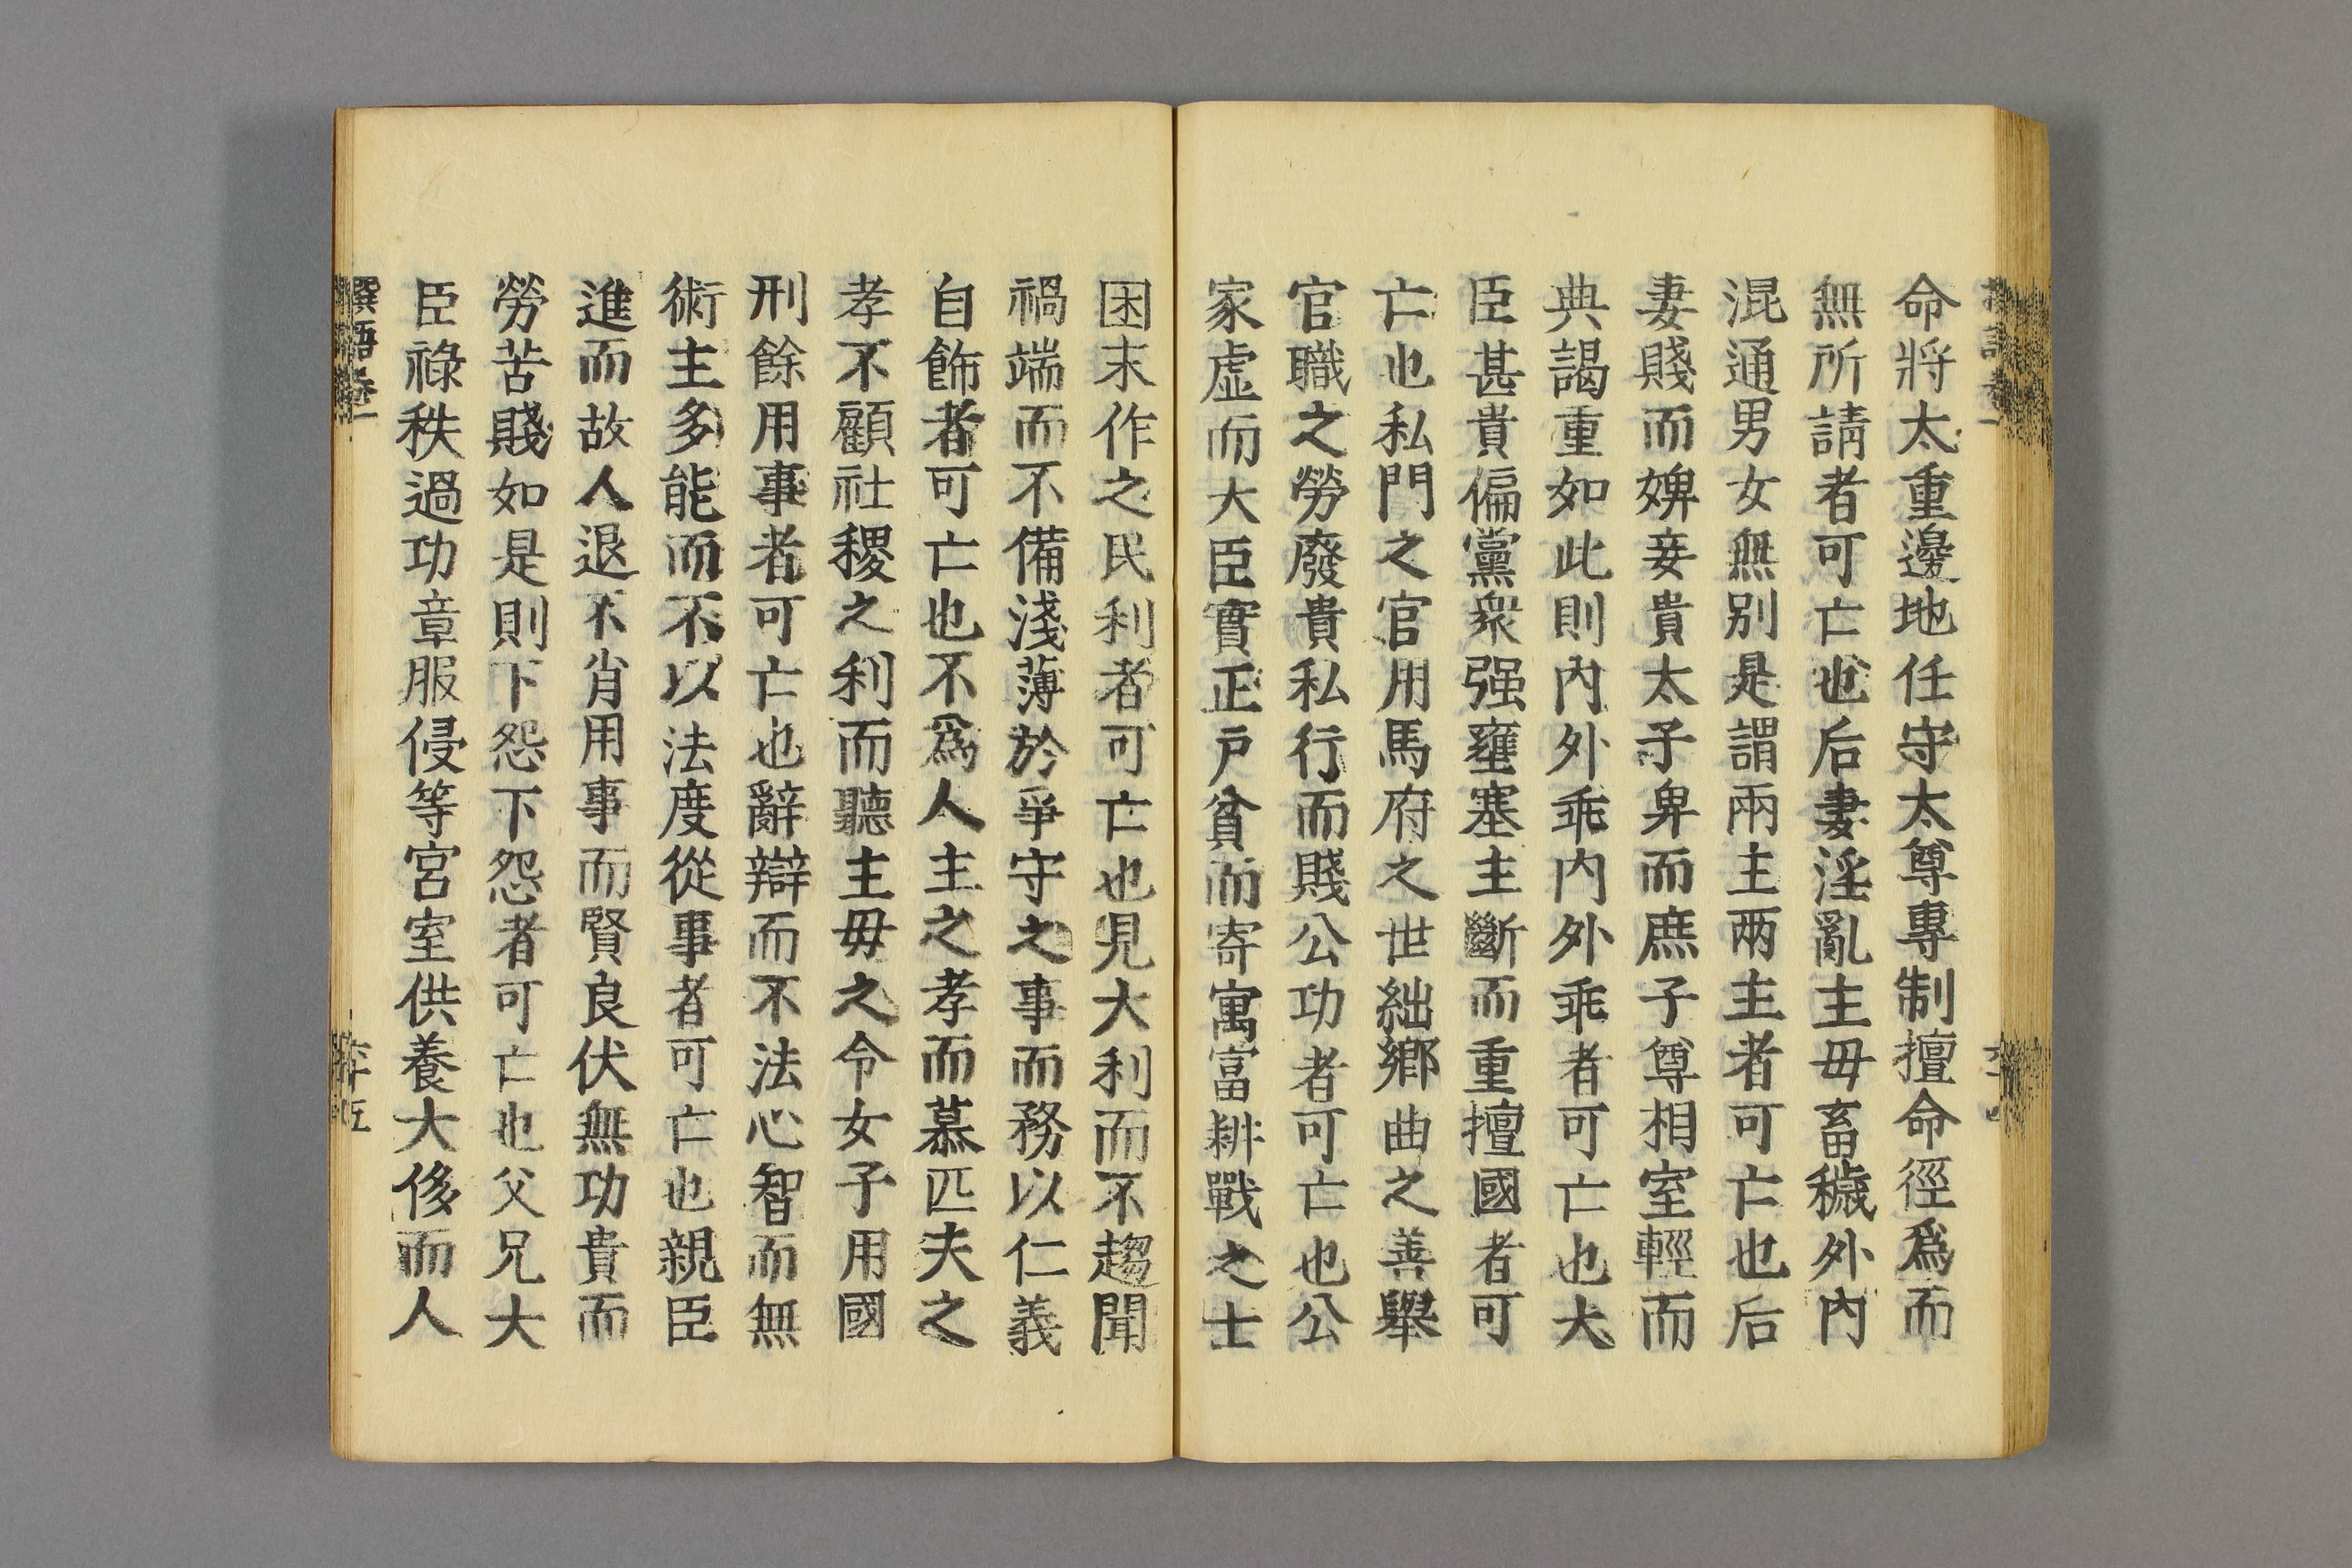 命將太重邊地任守太尊專制擅命徑爲而
無所請者可亡也后妻淫亂主毋畜穢外內
混通男女無別是謂兩主兩主者可亡也后
妻賤而婢妾貴太子卑而庶子尊相室輕而
典謁重如此則內外乖內外乖者可亡也大
臣甚貴偏黨衆强壅塞主斷而重擅國者可
亡也私門之官用馬府之世絀鄉曲之善舉
官職之勞廢貴私行而賤公功者可亡也公
家虛而大臣實正戶貧而寄寓富耕戰之士
困末作之民利者可亡也見大利而不趨聞
禍端而不備淺薄於爭守之事而務以仁義
自飾者可亡也不爲人主之孝而慕匹夫之
孝不顧社稷之利而聽主毋之令女子用國
刑餘用事者可亡也辭辯而不法心智而無
術主多能而不以法度從事者可亡也親臣
進而故人退不肖用事而賢良伏無功貴而
勞苦賤如是則下怨下怨者可亡也父兄大
臣祿秩過功章服侵等宮室供養大侈而人